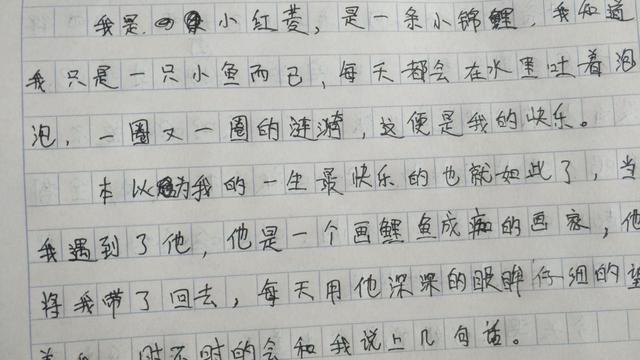 我是小红菱，是一条小锦鲤，我知道
我只是一只小鱼而已，每天都会在水里吐着泡
泡，一圈又一圈的涟漪，这便是我的快乐。
本以为我的一生最快乐的也就如此了，当
我遇到了他，他是一个画鲤鱼成痴的画家，他
将我带了回去，每天用他深深的眼眸仔细的望
着我，时不时的会和我说上几句话。